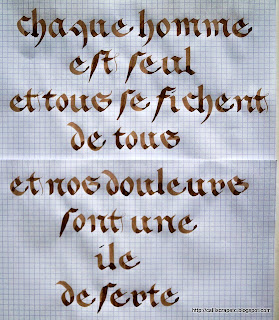 chaque homme
est seul
et tous se fichent
de tous
et nos douleurs
sont une
ile
deserte
http://calliscrapsic.blogspot.com